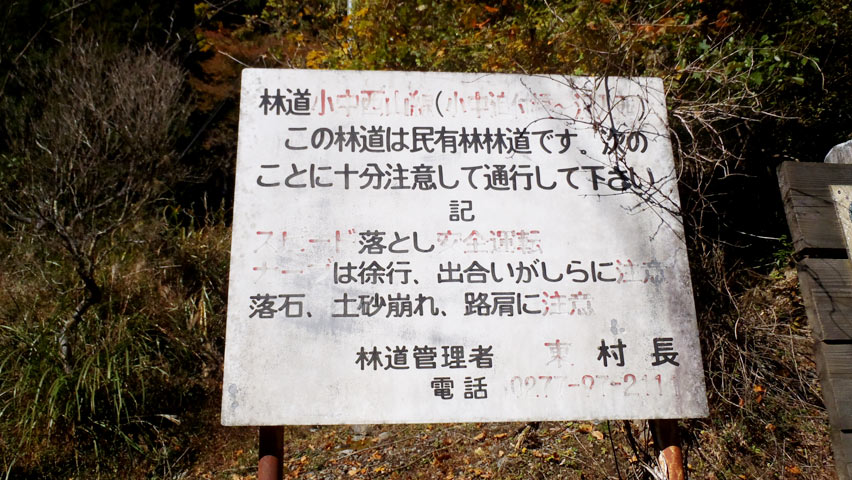 林道小中西山線(小中
この林道は民有林林道です。次の
ことに十分注意して通行して下さい
記
スピード落とし安全運転
カーブは徐行、出合いがしらに注意
落石、土砂崩れ、路肩に注意
林道管理者 東村長
電話 0277-97-2111